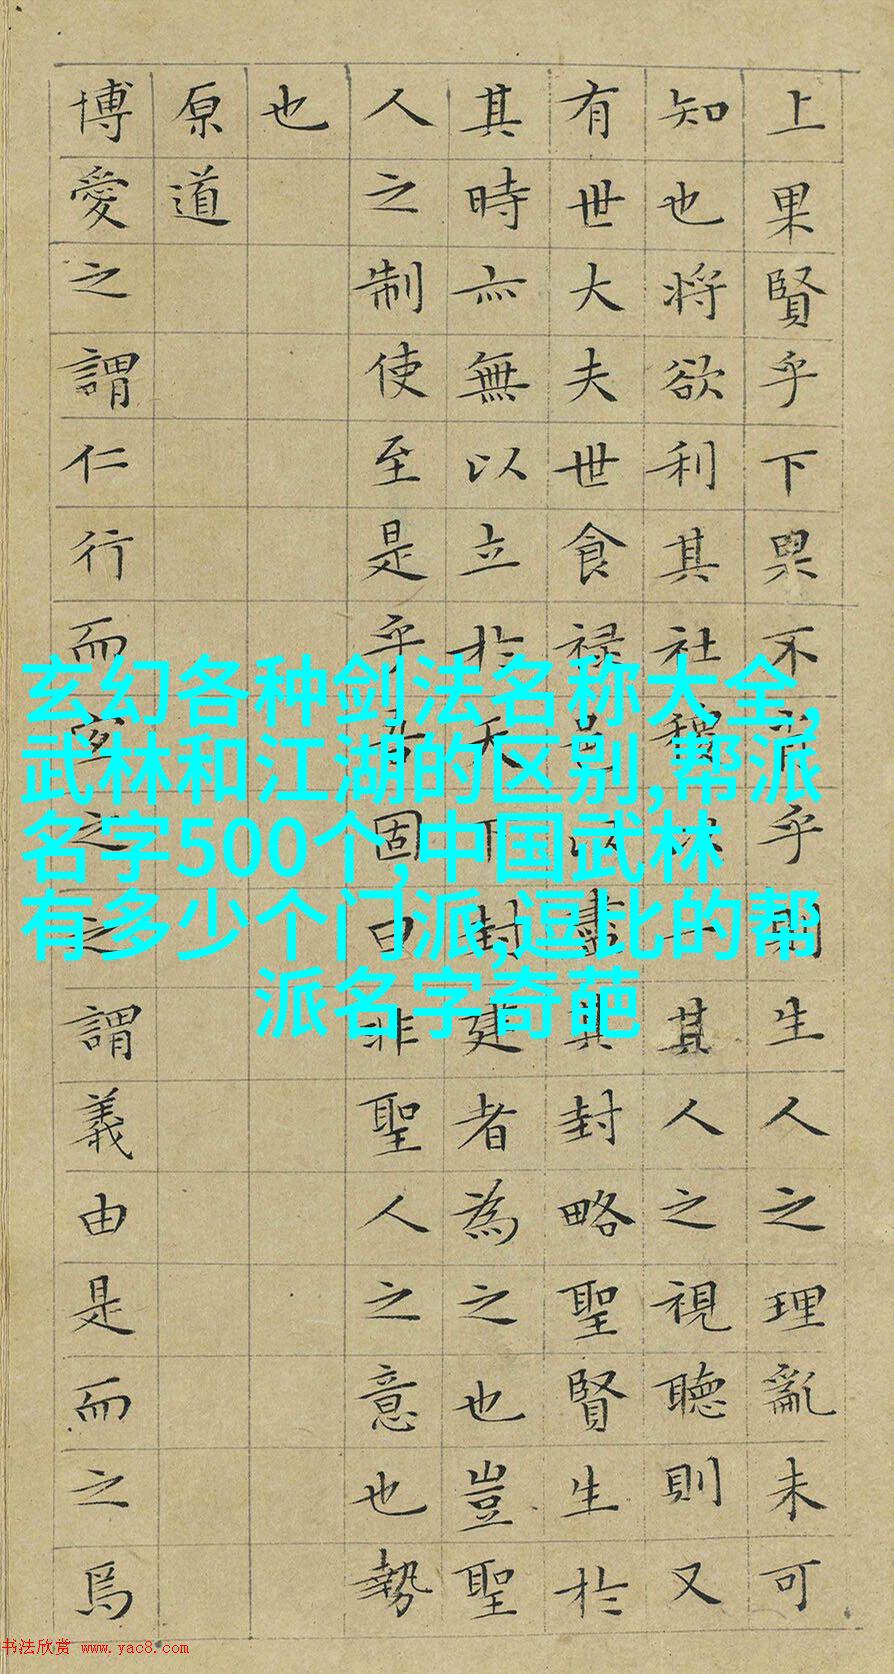 上果賢乎下果不肖乎則生人之理亂未可
知也將欲利其社稷以一其人之視聽則又
有世大夫世食祿邑以盡其封略聖賢生於
其時亦無以立於天下封建者為之也豈聖
人之制使至是乎吾固曰非聖人之意也勢
也
原道
博愛之謂仁行而宜之之謂義由是而之焉
玄幻各种剑法名称大全,
武林和江湖的区别,帮派
名字500个,中国武林
有多少个门派,逗比的帮
派名字奇葩
书法欣赏 www.yac8.com